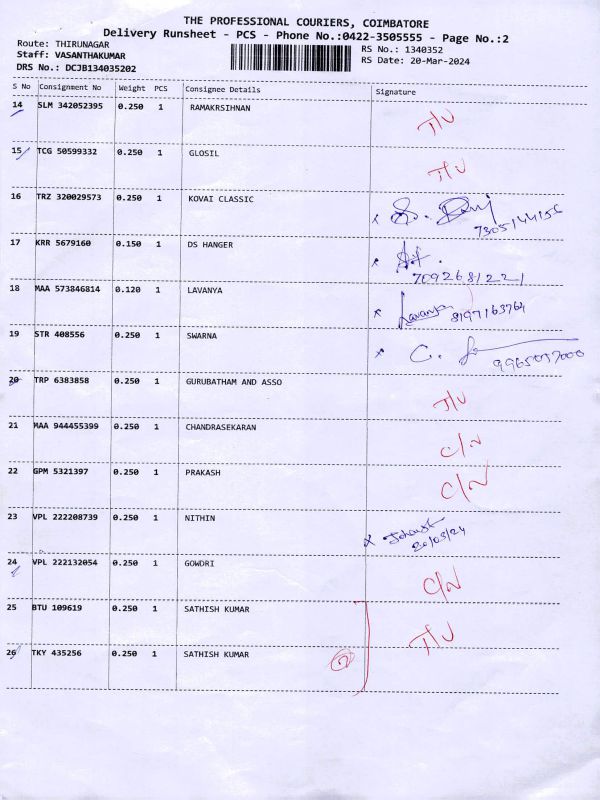 THE PROFESSIONAL COURIERS, COIMBATORE
Delivery Runsheet - PCS - Phone No.:0422-3505555 - Page No.:2
Route: THIRUNAGAR RS No.: 1340352
Staff: VASANTHAKUMAR RS Date: 20-Mar-2024
DRS No.: DCJB134035202
S No Consignment No Weight PCS Consignee Details Signature
14 SLM 342052395 0.250 1 RAMAKRSIHNAN
15 TCG 50599332 0.250 1 GLOSIL
16 TRZ 320029573 0.250 1 KOVAI CLASSIC
7305144156
17 KRR 5679160 0.150 1 DS HANGER
7092681221
18 MAA 573846814 0.120 1 LAVANYA
Lavanya 8197163764
19 STR 408556 0.250 1 SWARNA
9965037000
20 TRP 6383858 0.250 1 GURUBATHAM AND ASSO
21 MAA 944455399 0.250 1 CHANDRASEKARAN
C/N
22 GPM 5321397 0.250 1 PRAKASH
C/N
23 VPL 222208739 0.250 1 NITHIN
20/03/24
24 VPL 222132054 0.250 1 GOWDRI
C/N
25 BTU 109619 0.250 1 SATHISH KUMAR
26 TKY 435256 0.250 1 SATHISH KUMAR